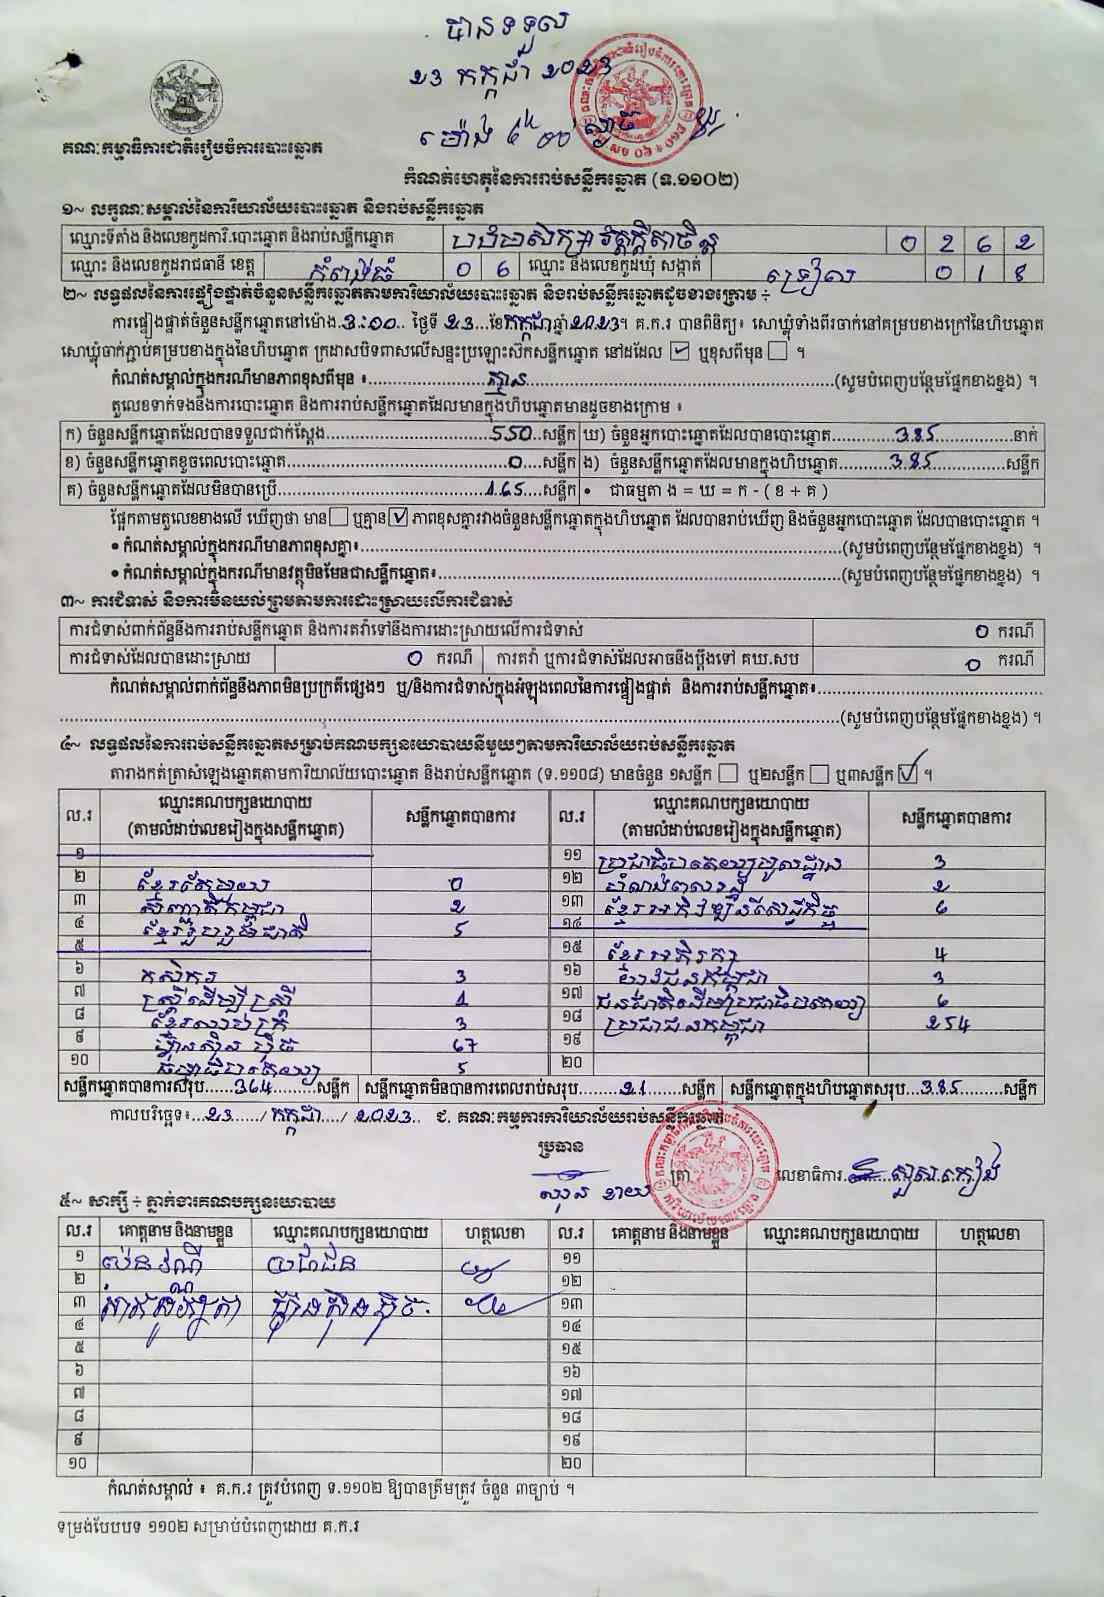 បានទទួល
23 កក្កដា 2023
ម៉ោង
គណៈកម្មាធិការជាតិរៀបចំការបោះឆ្នោត
កំណត់ហេតុនៃការរាប់សន្លឹកឆ្នោត (ទ.១១០២)
១~ លក្ខណៈសម្គាល់នៃការិយាល័យបោះឆ្នោត និងរាប់សន្លឹកឆ្នោត
ឈ្មោះទីតាំង និងលេខកូដការិ.បោះឆ្នោត និងរាប់សន្លឹកឆ្នោត 0 2 6 2
ឈ្មោះ និងលេខកូដរាជធានី ខេត្ត កំពង់ធំ 0 6 ឈ្មោះ និងលេខកូដឃុំ សង្កាត់ ទ្រៀល 0 1 8
២~ លទ្ធផលនៃការផ្ទៀងផ្ទាត់ចំនួនសន្លឹកឆ្នោតតាមការិយាល័យបោះឆ្នោត និងរាប់សន្លឹកឆ្នោតដូចខាងក្រោម ÷
ការផ្ទៀងផ្ទាត់ចំនួនសន្លឹកឆ្នោតនៅម៉ោង 3:00 ថ្ងៃទី 23 ខែ កក្កដា ឆ្នាំ 2023។ គ.ក.រ បានពិនិត្យ៖ សោឃ្លុំទាំងពីរចាក់នៅគម្របខាងក្រៅនៃហិបឆ្នោត
សោឃ្លុំចាក់ភ្ជាប់គម្របខាងក្នុងនៃហិបឆ្នោត ក្រដាសបិទពាសលើសន្ទះប្រឡោះស៊កសន្លឹកឆ្នោត នៅដដែល ☑ ឬខុសពីមុន ☐ ។
កំណត់សម្គាល់ក្នុងករណីមានភាពខុសពីមុន ៖ គ្មាន (សូមបំពេញបន្ថែមផ្នែកខាងខ្នង) ។
តួលេខទាក់ទងនឹងការបោះឆ្នោត និងការរាប់សន្លឹកឆ្នោតដែលមានក្នុងហិបឆ្នោតមានដូចខាងក្រោម ៖
ក) ចំនួនសន្លឹកឆ្នោតដែលបានទទួលជាក់ស្តែង) 550 សន្លឹក ឃ) ចំនួនអ្នកបោះឆ្នោតដែលបានបោះឆ្នោត 385 នាក់
ខ) ចំនួនសន្លឹកឆ្នោតខូចពេលបោះឆ្នោត 0 សន្លឹក ង) ចំនួនសន្លឹកឆ្នោតដែលមានក្នុងហិបឆ្នោត 385 សន្លឹក
គ) ចំនួនសន្លឹកឆ្នោតដែលមិនបានប្រើ 165 សន្លឹក • ជាធម្មតា ង = ឃ = ក - ( ខ + គ )
ផ្អែកតាមតួលេខខាងលើ ឃើញថា មាន ☐ ឬគ្មាន ☑ ភាពខុសគ្នារវាងចំនួនសន្លឹកឆ្នោតក្នុងហិបឆ្នោត ដែលបានរាប់ឃើញ និងចំនួនអ្នកបោះឆ្នោត ដែលបានបោះឆ្នោត ។
• កំណត់សម្គាល់ក្នុងករណីមានភាពខុសគ្នា៖ (សូមបំពេញបន្ថែមផ្នែកខាងខ្នង) ។
• កំណត់សម្គាល់ក្នុងករណីមានវត្ថុមិនមែនជាសន្លឹកឆ្នោត៖ (សូមបំពេញបន្ថែមផ្នែកខាងខ្នង) ។
៣~ ការជំទាស់ និងការមិនយល់ព្រមតាមការដោះស្រាយលើការជំទាស់
ការជំទាស់ពាក់ព័ន្ធនឹងការរាប់សន្លឹកឆ្នោត និងការតវ៉ាទៅនឹងការដោះស្រាយលើការជំទាស់ 0 ករណី
ការជំទាស់ដែលបានដោះស្រាយ 0 ករណី ការតវ៉ា ឬការជំទាស់ដែលអាចនឹងប្តឹងទៅ គឃ.សប 0 ករណី
កំណត់សម្គាល់ពាក់ព័ន្ធនឹងភាពមិនប្រក្រតីផ្សេងៗ ឬ/និងការជំទាស់ក្នុងអំឡុងពេលនៃការផ្ទៀងផ្ទាត់ និងការរាប់សន្លឹកឆ្នោត៖
(សូមបំពេញបន្ថែមផ្នែកខាងខ្នង) ។
៤~ លទ្ធផលនៃការរាប់សន្លឹកឆ្នោតសម្រាប់គណបក្សនយោបាយនីមួយៗតាមការិយាល័យរាប់សន្លឹកឆ្នោត
តារាងកត់ត្រាសំឡេងឆ្នោតតាមការិយាល័យបោះឆ្នោត និងរាប់សន្លឹកឆ្នោត (ទ.១១០៨) មានចំនួន ១សន្លឹក ☐ ឬ២សន្លឹក ☐ ឬ៣សន្លឹក ☑ ។
ល.រ ឈ្មោះគណបក្សនយោបាយ (តាមលំដាប់លេខរៀងក្នុងសន្លឹកឆ្នោត) សន្លឹកឆ្នោតបានការ ល.រ ឈ្មោះគណបក្សនយោបាយ (តាមលំដាប់លេខរៀងក្នុងសន្លឹកឆ្នោត) សន្លឹកឆ្នោតបានការ
១ ១១ ប្រជាធិបតេយ្យមូលដ្ឋាន 3
២ ខ្មែរតែមួយ 0 ១២ 2
៣ សញ្ជាតិកម្ពុជា 2 ១៣ ខ្មែរអភិវឌ្ឍន៍សេដ្ឋកិច្ច 6
៤ ខ្មែររួបរួមជាតិ 5 ១៤
៥ ១៥ ខ្មែរអភិរក្ស 4
៦ កសិករ 3 ១៦ យុវជនកម្ពុជា 3
៧ ស្ត្រីដើម្បីស្ត្រី 1 ១៧ ជនជាតិដើមប្រជាធិបតេយ្យ 6
៨ ខ្មែរឈប់ក្រ 3 ១៨ ប្រជាជនកម្ពុជា 254
៩ ហ៊្វុនស៊ិនប៉ិច 67 ១៩
១០ 5 ២០
សន្លឹកឆ្នោតបានការសរុប 364 សន្លឹក សន្លឹកឆ្នោតមិនបានការពេលរាប់សរុប 21 សន្លឹក សន្លឹកឆ្នោតក្នុងហិបឆ្នោតសរុប 385 សន្លឹក
កាលបរិច្ឆេទ៖ 23 / កក្កដា / 2023 ជ. គណៈកម្មការការិយាល័យរាប់សន្លឹកឆ្នោត
ប្រធាន
ត្រា លេខាធិការ
៥~ សាក្សី ÷ ភ្នាក់ងារគណបក្សនយោបាយ
ល.រ គោត្តនាម និងនាមខ្លួន ឈ្មោះគណបក្សនយោបាយ ហត្ថលេខា ល.រ គោត្តនាម និងនាមខ្លួន ឈ្មោះគណបក្សនយោបាយ ហត្ថលេខា
១ ប្រជាជន ១១
២ ១២
៣ ហ៊្វុនស៊ិនប៉ិច ១៣
៤ ១៤
៥ ១៥
៦ ១៦
៧ ១៧
៨ ១៨
៩ ១៩
១០ ២០
កំណត់សម្គាល់ ៖ គ.ក.រ ត្រូវបំពេញ ទ.១១០២ ឱ្យបានត្រឹមត្រូវ ចំនួន ៣ច្បាប់ ។
ទម្រង់បែបបទ ១១០២ សម្រាប់បំពេញដោយ គ.ក.រ